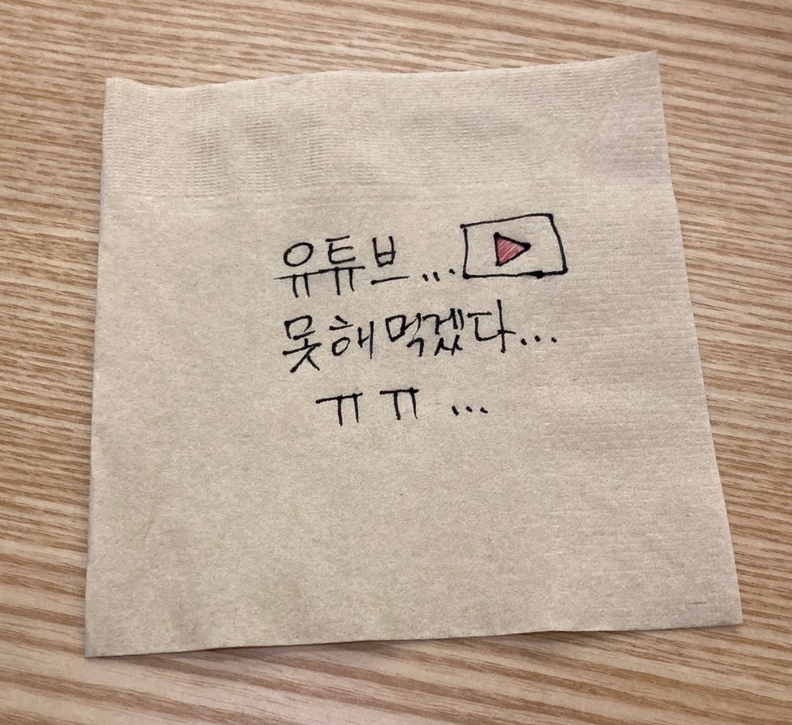 유튜브...
못해먹겠다...
ㅠㅠ...